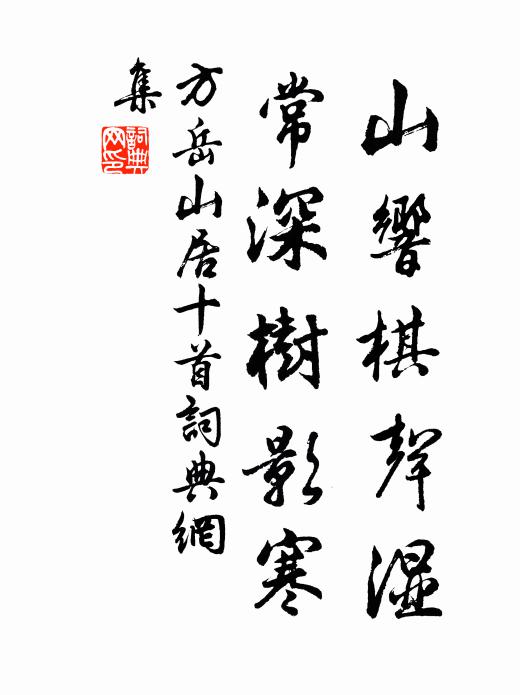 山響棋聲濕
常深樹影寒
方岳山居十首詞典網
集
詞典
网印